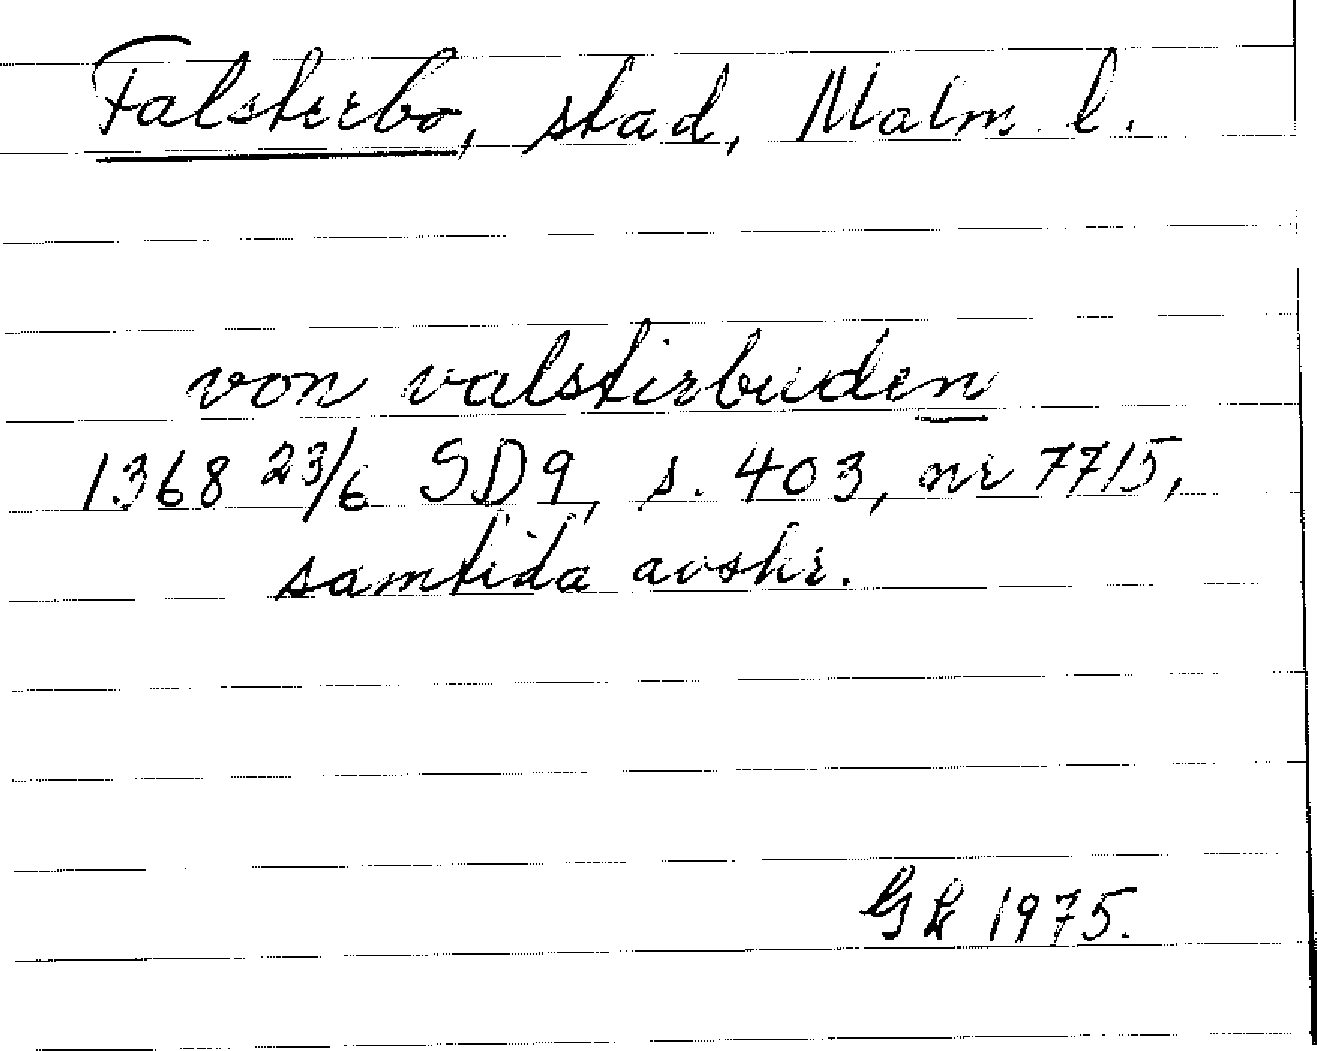 Falsterbo, stad, Malm. l.
von valstirbuden
1368 23/6 SD9, s. 403, nr 7715,
samtida avskr.
1975.